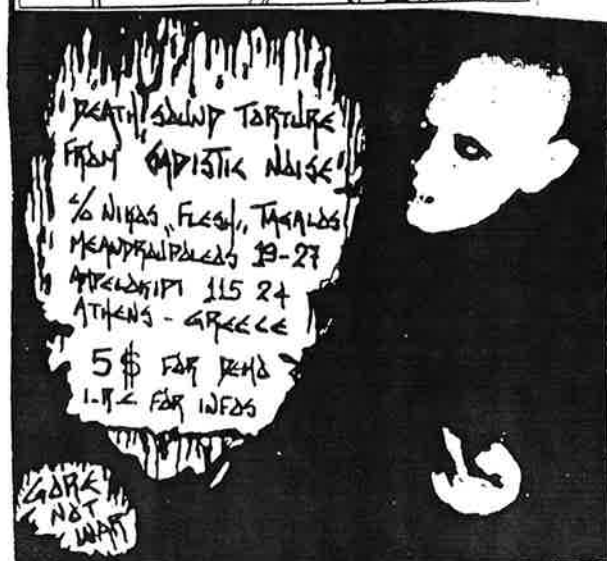 DEATH SOUND TORTURE
FROM "SADISTIC NOISE"
C/O NIKOS "FLESH" TAGALOS
19-27
115 24
ATHENS - GREECE
5$ FOR DEMO
I.R.C FOR INFOS
GORE
NOT
WAR